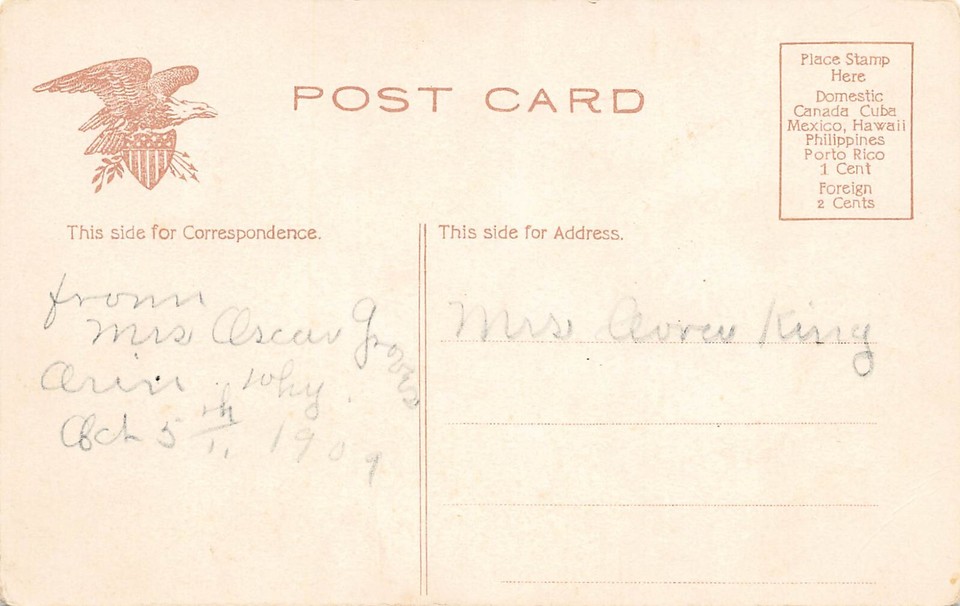 POST CARD
Place Stamp
Here
Domestic
Canada Cuba
Mexico, Hawaii
Philippines
Porto Rico
1 Cent
Foreign
2 Cents
This side for Correspondence.
This side for Address.
from
Mrs Oscar
why.
Oct 5th, 1909
Mrs King